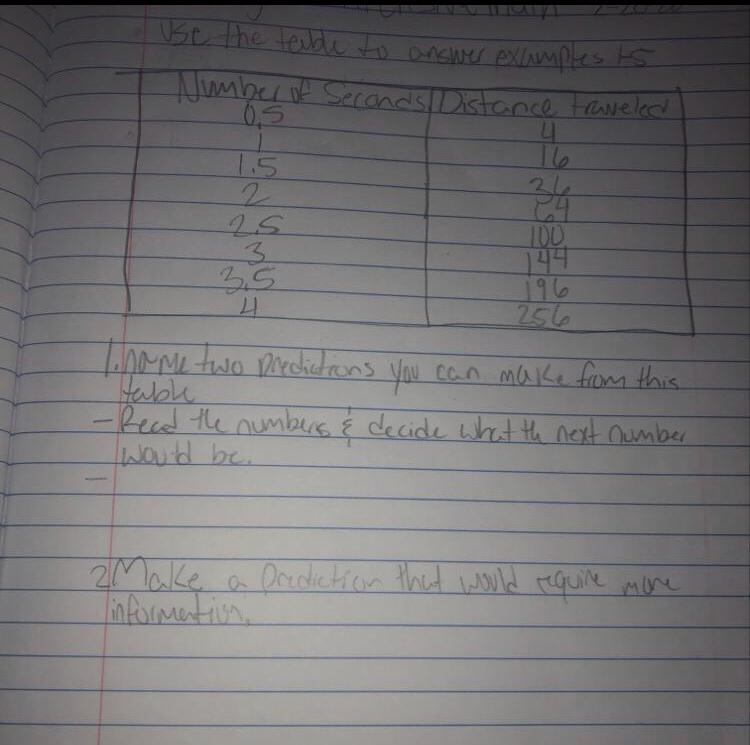 Use the table to answer examples 1-5
Number of Seconds Distance traveled
0.5 4
1 16
1.5 36
2 64
2.5 100
3 144
3.5 196
4 256
1. name two predictions you can make from this
table
- Read the numbers & decide what th next number
would be.
-
2 Make a prediction that would require more
information.